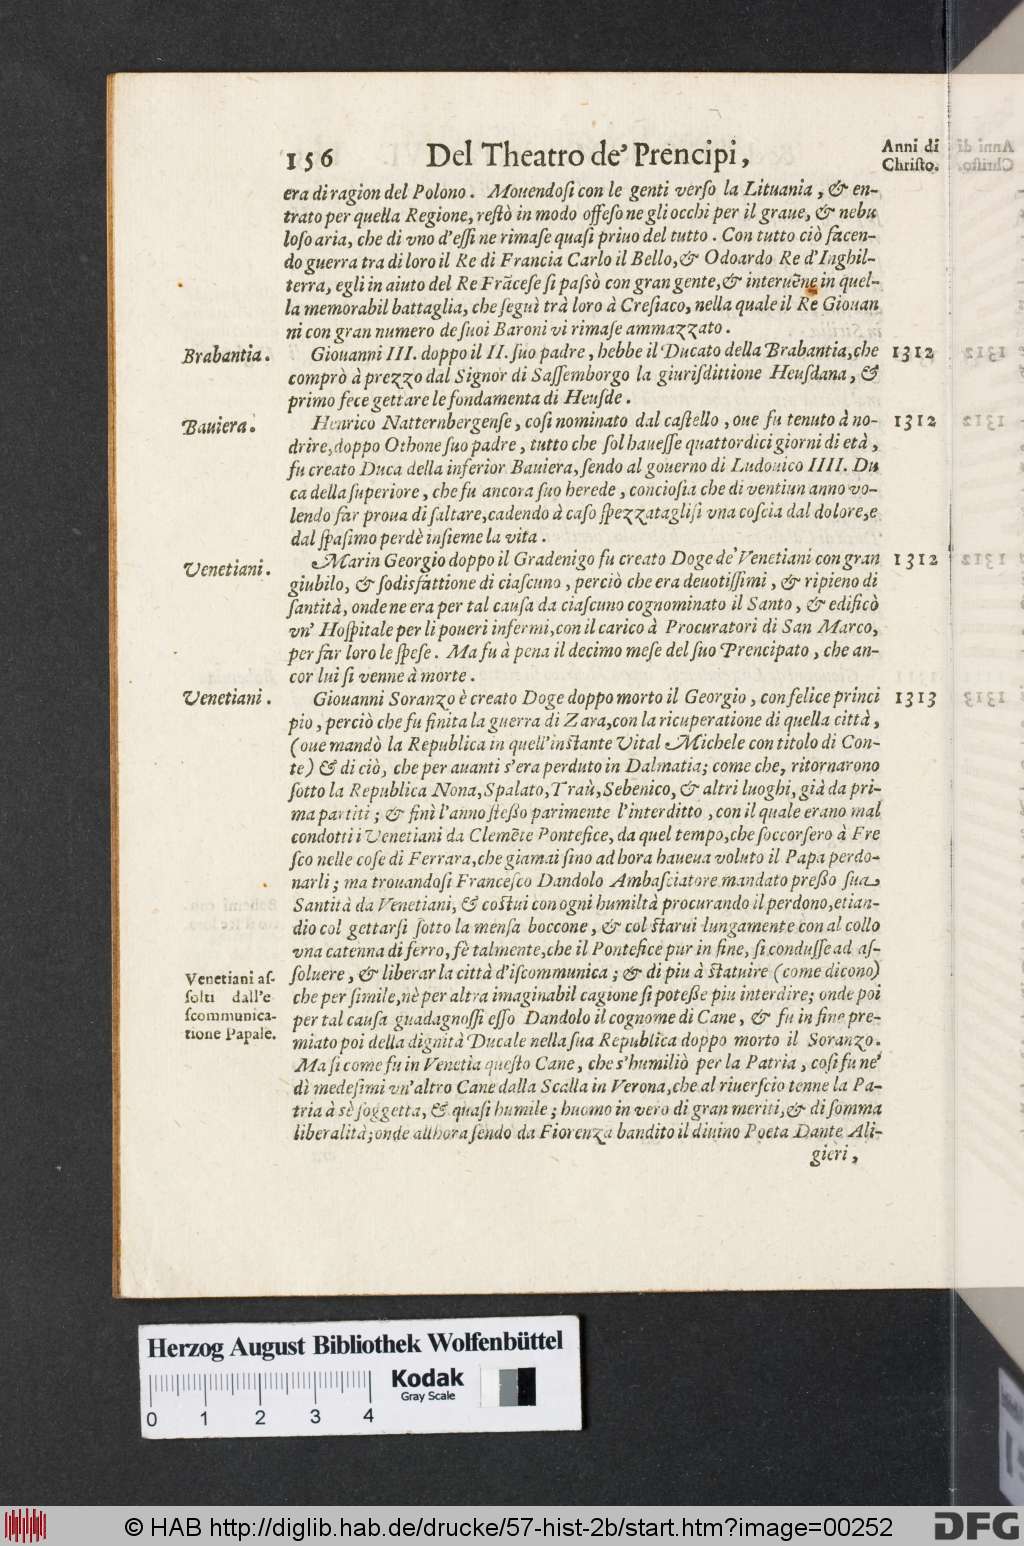 156 Del Theatro de' Prencipi, Anni di Chriſto.
era di ragion del Polono. Mouendoſi con le genti verſo la Lituania, & en-
trato per quella Regione, reſtò in modo offeſo ne gli occhi per il graue, & nebu
loſo aria, che di vno d'eſſi ne rimaſe quaſi priuo del tutto. Con tutto ciò facen-
do guerra tra di loro il Re di Francia Carlo il Bello, & Odoardo Re d'Inghil-
terra, egli in aiuto del Re Frãceſe ſi paſsò con gran gente, & interuẽne in quel-
la memorabil battaglia, che ſeguì trà loro à Creſiaco, nella quale il Re Giouan
ni con gran numero de ſuoi Baroni vi rimaſe ammazzato.
Brabantia. Giouanni III. doppo il II. ſuo padre, hebbe il Ducato della Brabantia, che 1312
comprò à prezzo dal Signor di Saſſemborgo la giuriſdittione Heuſdana, &
primo fece gettare le fondamenta di Heuſde.
Bauiera. Henrico Natternbergenſe, coſi nominato dal caſtello, oue fu tenuto à no- 1312
drire, doppo Othone ſuo padre, tutto che ſol haueſſe quattordici giorni di età,
fu creato Duca della inferior Bauiera, ſendo al gouerno di Ludouico IIII. Du
ca della ſuperiore, che fu ancora ſuo herede, concioſia che di ventiun anno vo-
lendo far proua di ſaltare, cadendo à caſo ſpezzatagliſi vna coſcia dal dolore, e
dal ſpaſimo perdè inſieme la vita.
Venetiani. Marin Georgio doppo il Gradenigo fu creato Doge de' Venetiani con gran 1312
giubilo, & ſodisfattione di ciaſcuno, perciò che era deuotiſſimi, & ripieno di
ſantità, onde ne era per tal cauſa da ciaſcuno cognominato il Santo, & edificò
vn' Hoſpitale per li poueri infermi, con il carico à Procuratori di San Marco,
per far loro le ſpeſe. Ma fu à pena il decimo meſe del ſuo Prencipato, che an-
cor lui ſi venne à morte.
Venetiani. Giouanni Soranzo è creato Doge doppo morto il Georgio, con felice princi 1313
pio, perciò che fu finita la guerra di Zara, con la ricuperatione di quella città,
(oue mandò la Republica in quell'inſtante Vital Michele con titolo di Con-
te) & di ciò, che per auanti s'era perduto in Dalmatia; come che, ritornarono
ſotto la Republica Nona, Spalato, Traù, Sebenico, & altri luoghi, già da pri-
ma partiti; & finì l'anno ſteßo parimente l'interditto, con il quale erano mal
condotti i Venetiani da Clemẽte Pontefice, da quel tempo, che ſoccorſero à Fre
ſco nelle coſe di Ferrara, che giamai ſino ad hora haueua voluto il Papa perdo-
narli; ma trouandoſi Franceſco Dandolo Ambaſciatore mandato preßo ſua
Santità da Venetiani, & coſtui con ogni humiltà procurando il perdono, etian-
dio col gettarſi ſotto la menſa boccone, & col ſtarui lungamente con al collo
vna catenna di ferro, fè talmente, che il Pontefice pur in fine, ſi conduſſe ad aſ-
Venetiani aſ- ſoluere, & liberar la città d'iſcommunica; & di piu à ſtatuire (come dicono)
ſolti dall'e che per ſimile, nè per altra imaginabil cagione ſi poteße piu interdire; onde poi
ſcommunica- per tal cauſa guadagnoſſi eſſo Dandolo il cognome di Cane, & fu in fine pre-
tione Papale. miato poi della dignità Ducale nella ſua Republica doppo morto il Soranzo.
Ma ſi come fu in Venetia queſto Cane, che s'humiliò per la Patria, coſi fu ne'
dì medeſimi vn'altro Cane dalla Scalla in Verona, che al riuerſcio tenne la Pa-
tria à sè ſoggetta, & quaſi humile; huomo in vero di gran meriti, & di ſomma
liberalità; onde allhora ſendo da Fiorenza bandito il diuino Poeta Dante Ali-
gieri,
Herzog August Bibliothek Wolfenbüttel
Kodak
Gray Scale
0 1 2 3 4
© HAB http://diglib.hab.de/drucke/57-hist-2b/start.htm?image=00252 DFG